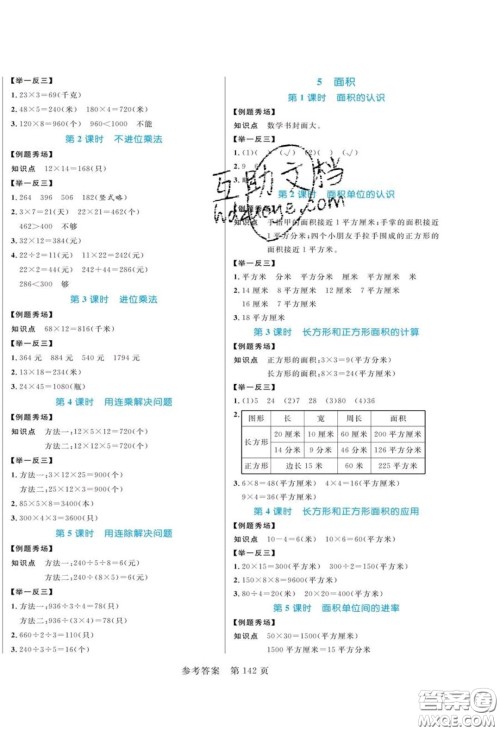 【举一反三】
1. 23×3=69(千克)
2. 48×5=240(米) 180×4=720(米)
3. 120×8=960(个) 960<1000 不能
第 2 课时 不进位乘法
【例题秀场】
知识点 12×14=168(只)
【举一反三】
1. 264 396 506 182 (竖式略)
2. 3×7=21(天) 22×21=462(个)
462>400 不够
3. 32×12=384(个)
4. 22÷2=11(元) 22×11=242(元)
22×2=44(元) 242+44=286(元)
286<300 够
第 3 课时 进位乘法
【例题秀场】
知识点 68×12=816(千克)
【举一反三】
1. 364 元 864 元 540 元 1794 元
2. 13×18=234(个)
3. 24×45=1080(瓶)
第 4 课时 用连乘解决问题
【例题秀场】
知识点 方法一:12×5×12=720(个)
方法二:12×12×5=720(个)
【举一反三】
1. 方法一:3×12×25=900(个)
方法二:25×12×3=900(个)
2. 85×5×8=3400(个)
3. 300×4×3=3600(只)
第 5 课时 用连除解决问题
【例题秀场】
知识点 方法一:240÷5÷8=6(个)
方法二:240÷(8×5)=6(个)
【举一反三】
1. 方法一:936÷3÷4=78(只)
方法二:936÷(3×4)=78(只)
2. 660÷2÷3=110(只)
3. 240÷2÷3=40(下)
5 面积
第 1 课时 面积的认识
【例题秀场】
知识点 数学书封面大。
【举一反三】
1. (1)( ) (√) (√)
2. 9
3.
第 2 课时 面积单位的认识
【例题秀场】
知识点 手指甲的面积接近 1 平方厘米;手掌的面积接近
1 平方分米;四个小朋友手拉手围成的正方形的
面积接近 1 平方米
【举一反三】
1. 平方分米 分米 平方米 平方厘米
2. 14 厘米 8 平方厘米 14 厘米 7 平方厘米
12 厘米 7 平方厘米
3. 18 平方厘米
第 3 课时 长方形和正方形面积的计算
【例题秀场】
知识点 正方形的面积:3×3=9(平方分米)
长方形的面积:4×2=8(平方厘米)
【举一反三】
1. (1)5 24 (2)7 28 (3)80 (4)36
2.
图形 长 宽 周长 面积
长方形 20 厘米 10 厘米 60 厘米 200 平方厘米
14 分米 9 分米 46 分米 126 平方分米
正方形 边长 15 米 60 米 225 平方米
3. 6×8=48(平方厘米) 4×4=16(平方厘米)
9×4=36(平方厘米)
第 4 课时 长方形和正方形面积的应用
【例题秀场】
知识点 10-4=6(米) 10×6=60(平方米)
【举一反三】
1. 20×15=300(平方米)
2. 150×8×8=9600(平方米)
3. 80÷4=20(米) 20×20=400(平方米)
第 5 课时 面积单位间的进率
【例题秀场】
知识点 50×30=1500(平方厘米)
1500 平方厘米=15 平方分米
参考答案 第 142 页
互助文档
答案圈
MXQE.COM